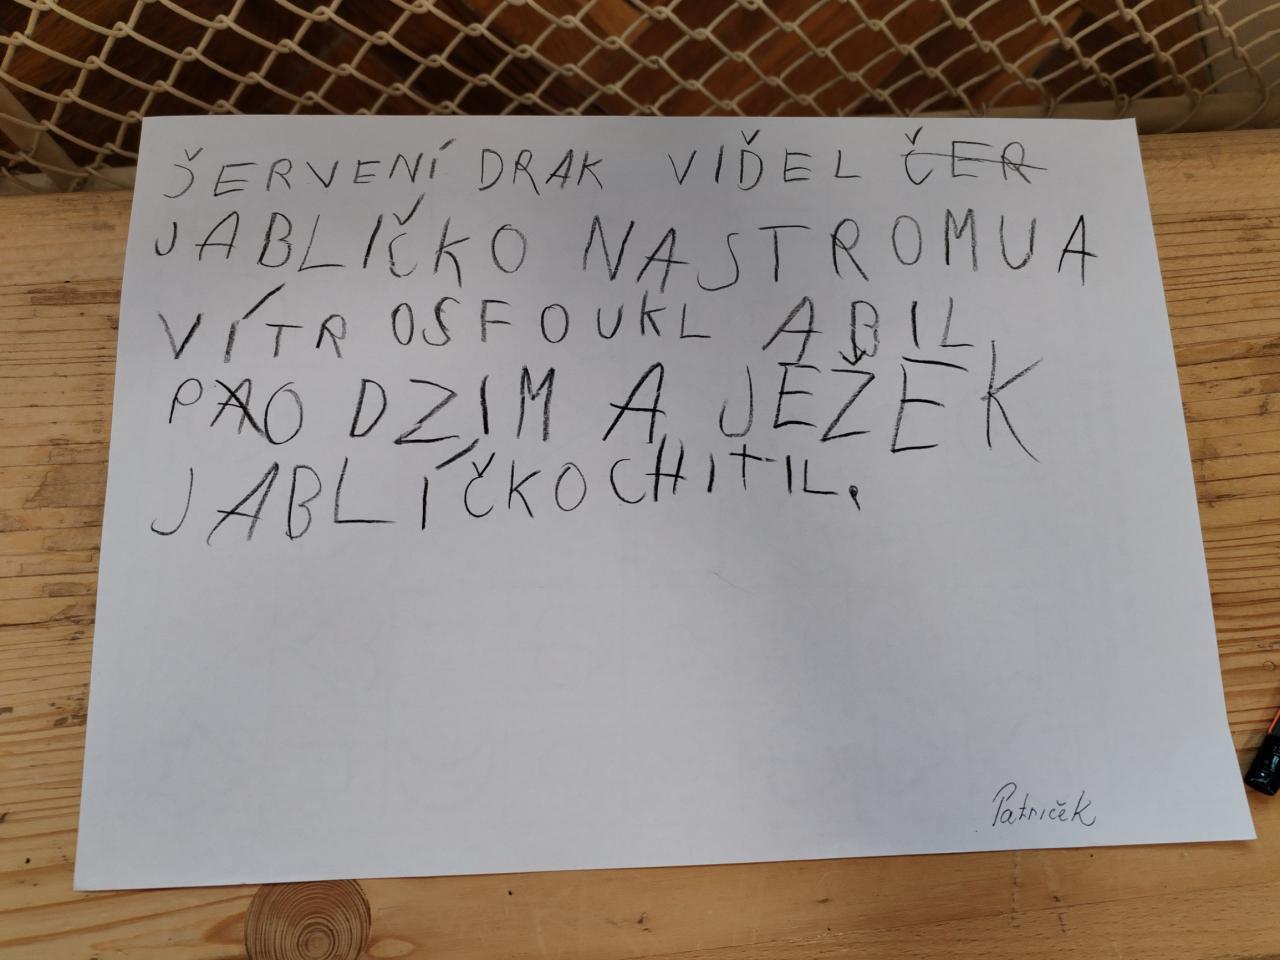 ŠERVENÍ DRAK VIĎEL ČER
JABLIČKO NA STROMU A
VÍTR OSFOUKL A BIL
PAO DZIM A JEŽEK
JABLÍČKO CHITIL.
Patriček